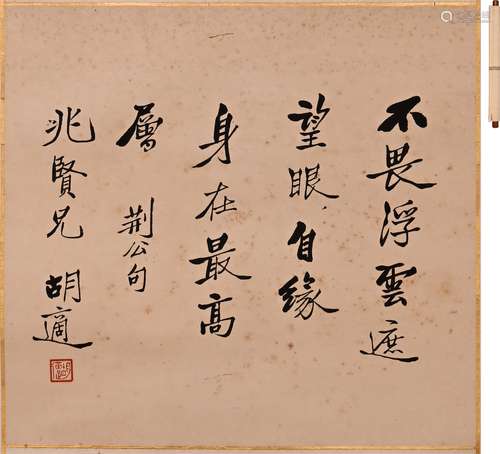 不畏浮雲遮
望眼自緣
身在最高
層 荆公句
兆賢兄 胡適